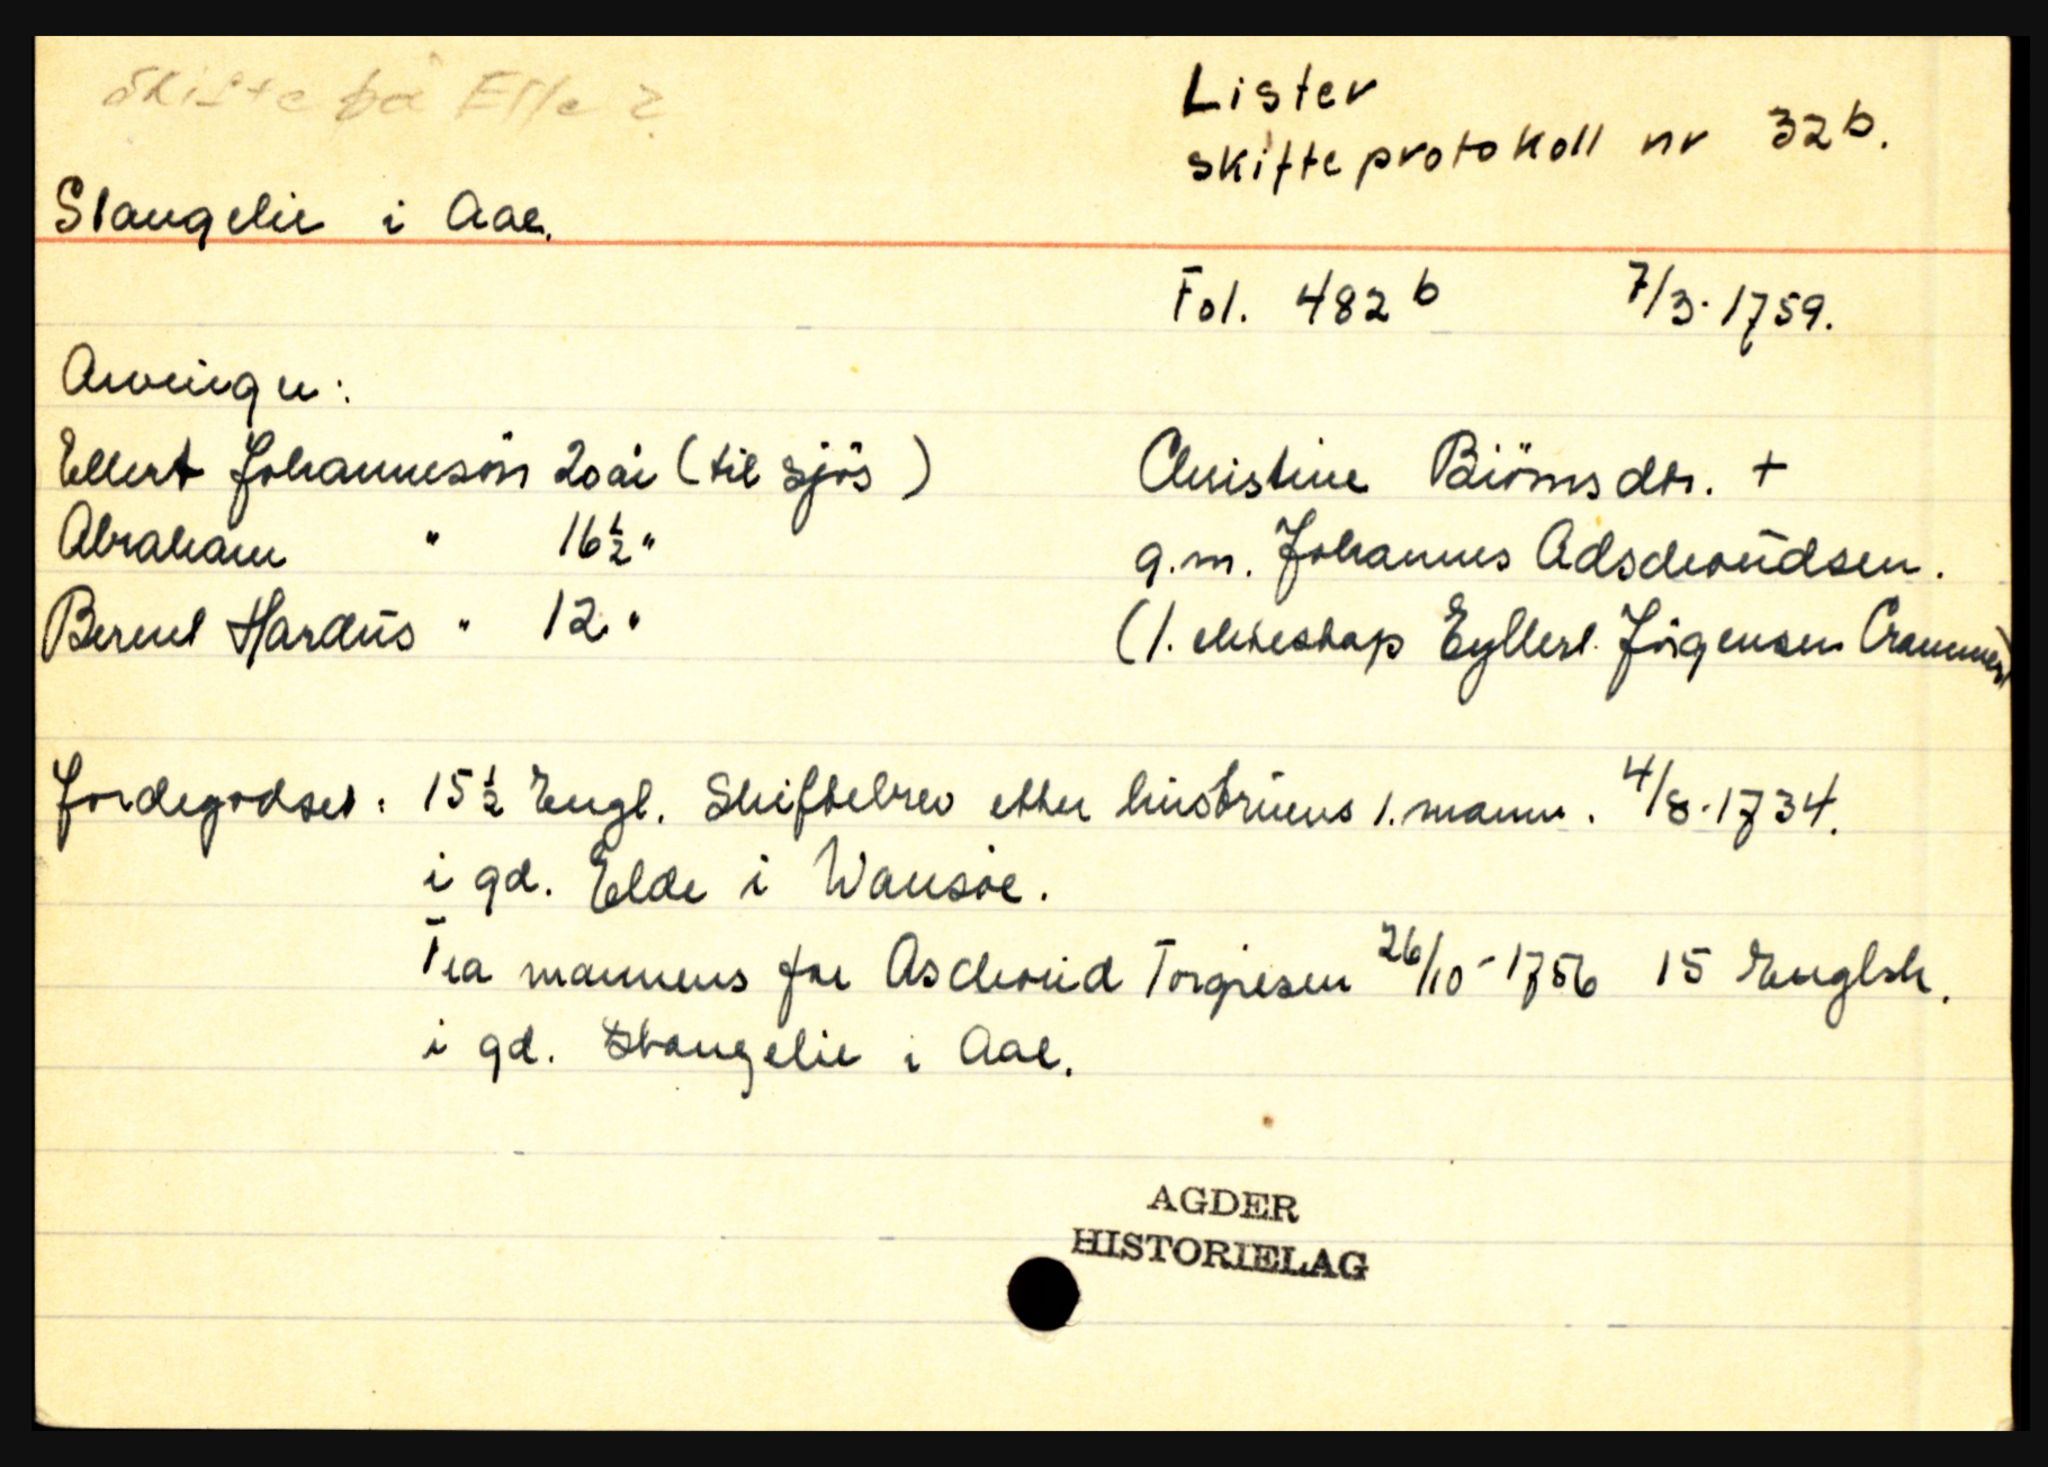 Skifte på Elle?
Lister
skifteprotokoll nr 32b.
Stangelie i Aae.
Fol. 482 b 7/3. 1759.
Arvinger:
Ellert Johannesön 20 år (til sjös)
Christine Biörnsdtr. +
Abraham " 16½ "
g.m. Johannes Adsdeoüdsen.
Berent Hardüs " 12 "
(1. ekteskap Eyllert Jörgensen Crammer)
Jordegodset: 15½ Engl. Skiftebrev etter hüstrüens 1. mann. 4/8. 1734.
i gd. Elde i Wansöe.
Fra mannens far Asdeoüd Torgiesen 26/10-1756 15 Englsk.
i gd. Stangelie i Aae.
AGDER
HISTORIELAG